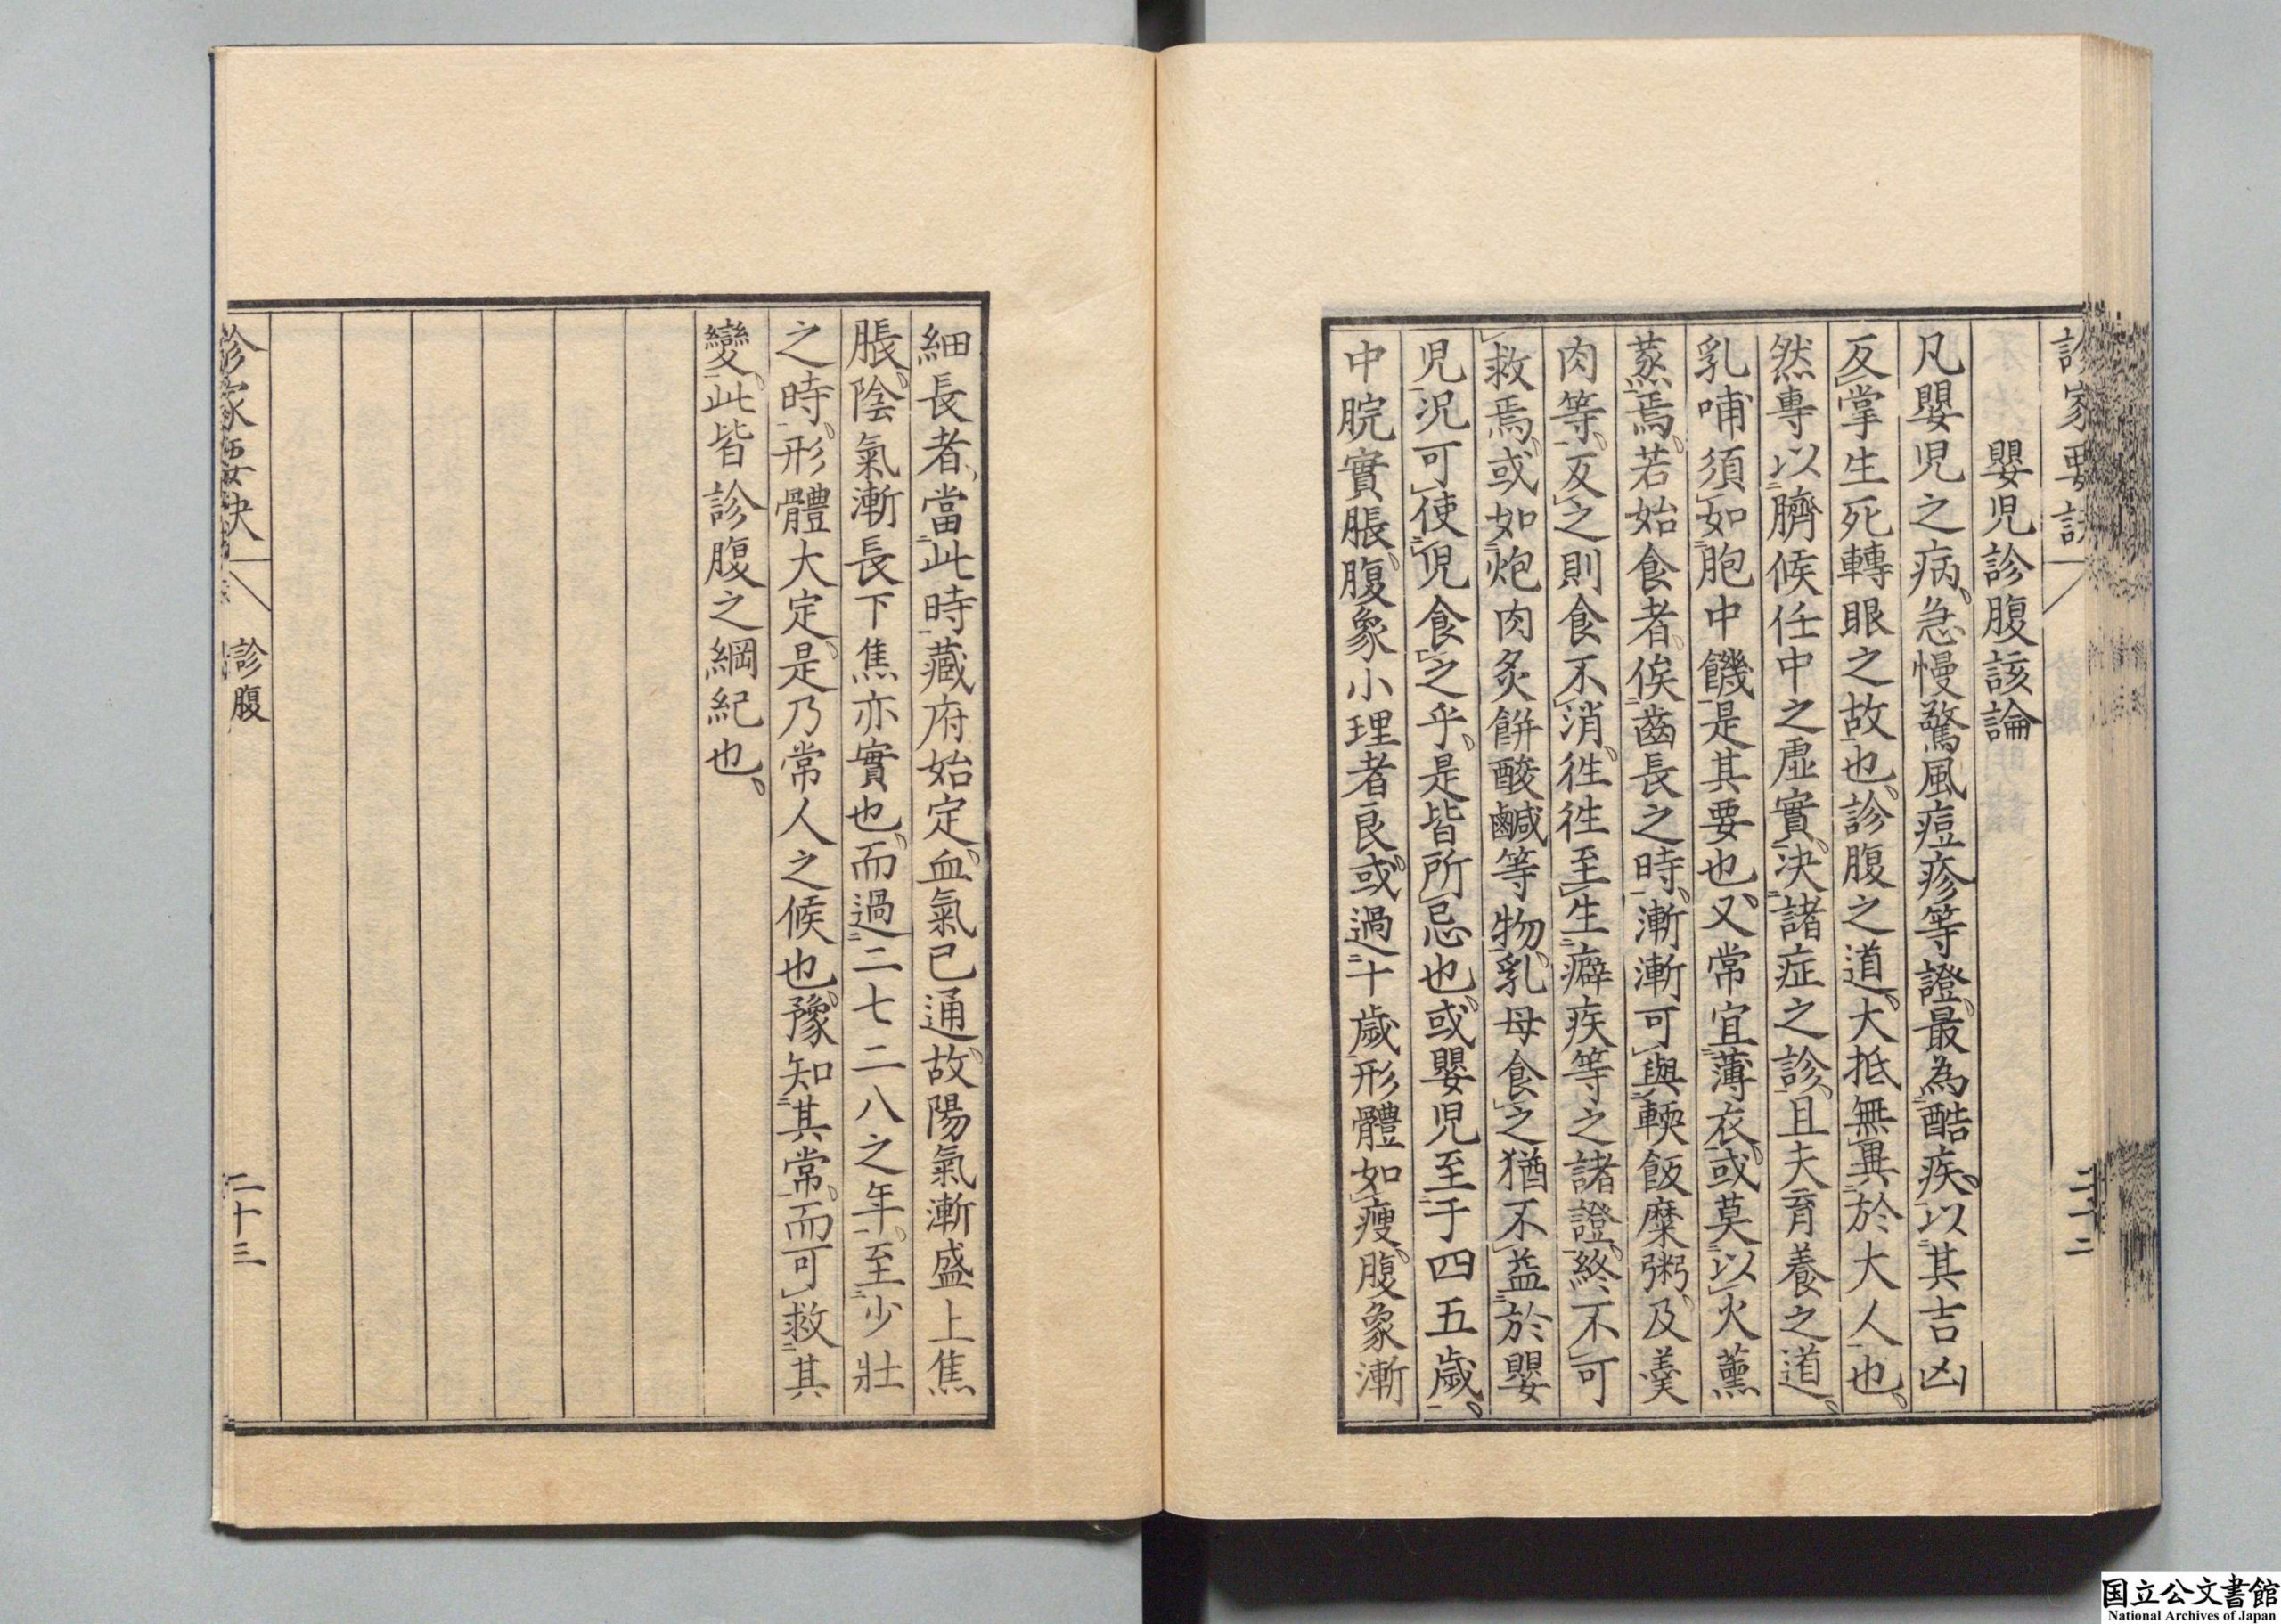 診家要訣
二十二
嬰児診腹該論
凡嬰児之病、急慢驚風痘疹等證、最為酷疾、以其吉凶
反掌生死轉眼之故也、診腹之道、大抵無異於大人也、
然専以臍候任中之虚實、决諸症之診、且夫育養之道、
乳哺須如胞中饑是其要也、又常宜薄衣、或莫以火薫
蒸焉、若始食者、俟齒長之時、漸漸可與輭飯糜粥、及羹
肉等、反之則食不消、徃徃至生癖疾等之諸證、終不可
救焉、或如炮肉炙餅酸鹹等物、乳母食之猶不益於嬰
児、況可使児食之乎、是皆所忌也、或嬰児至于四五歳、
中脘實脹、腹象小理者良、或過十歳形體如痩、腹象漸
細長者、當此時藏府始定、血氣已通、故陽氣漸盛上焦
脹、陰氣漸長下焦亦實也、而過二七二八之年、至少壮
之時、形體大定、是乃常人之候也、豫知其常、而可救其
變、此皆診腹之綱紀也、
診家要訣
診腹
二十三
国立公文書館
National Archives of Japan